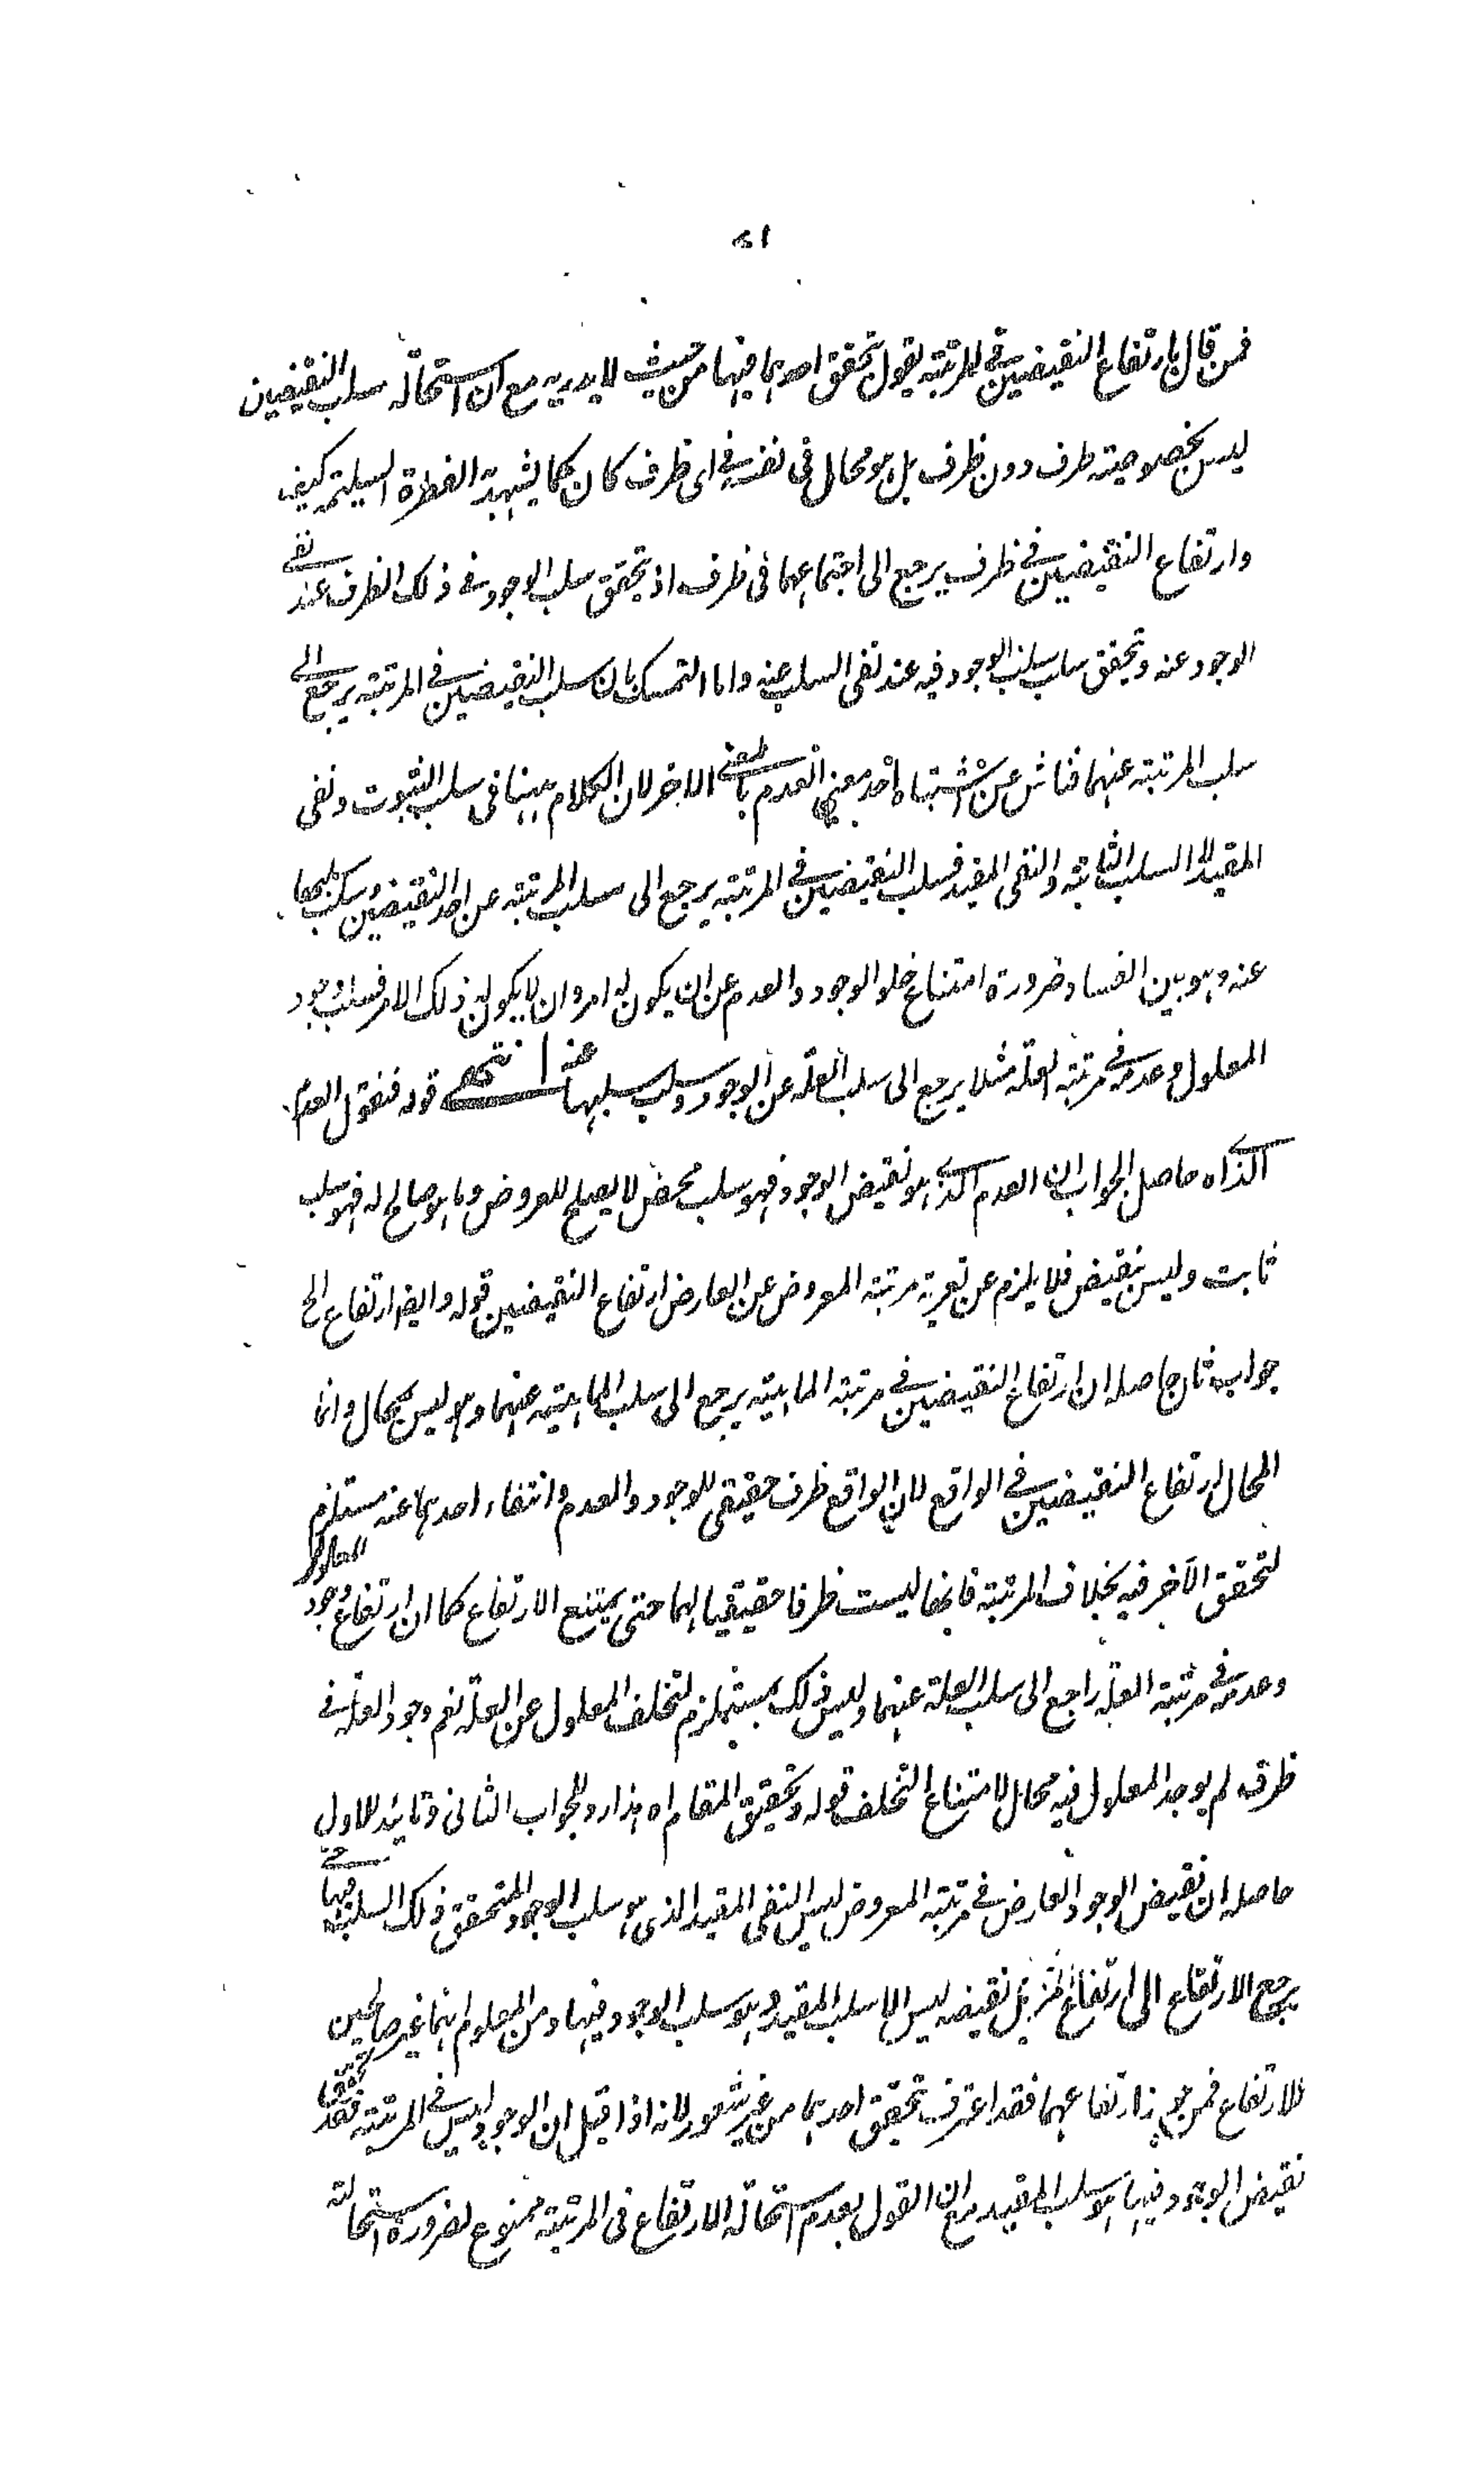 ۵۱
فمن قال بارتفاع النقيضين في المرتبة يقول بتحقق احدهما فيها من حيث لا يدريه مع ان استحالة سلب النقيضين
ليس بخصوصية ظرف دون ظرف بل هو محال في نفسه في اى ظرف كان كما يشهد به الفطرة السليمة كيف
وارتفاع النقيضين في ظرف يرجع الى اجتماعهما في ظرف اذ يتحقق سلب الوجود في ذلك الظرف عند نفى
الوجود عنه وتحقق سلب سلب الوجود فيه عند نفى السلب عنه واما التمسك بان سلب النقيضين في المرتبة يرجع الى
سلب المرتبة عنهما فناش عن اشتباه احد معنى العدم بالمعنى الاخر لان الكلام ههنا في سلب الثبوت ونفى
المقيد لا السلب الثابت والنفى المقيد فسلب النقيضين في المرتبة يرجع الى سلب المرتبة عن احد النقيضين وسلب سلبها
عنه وهو بين الفساد ضرورة امتناع خلو الوجود والعدم عن ان يكون له امر وان لا يكون له ذلك الامر فسلب وجود
المعلول وعدمه في مرتبة العلة مثلا يرجع الى سلب العلة عن الوجود وسلب سلبها عنه انتهى قوله فنقول العدم
الذى اه حاصل الجواب ان العدم الذى هو نقيض الوجود فهو سلب محض لا يصلح للعروض وما هو صالح له فهو سلب
ثابت وليس بنقيض فلا يلزم عن تعرية مرتبة المعروض عن العارض ارتفاع النقيضين قوله وايضا ارتفاع الخ
جواب ثان حاصله ان ارتفاع النقيضين في مرتبة الماهية يرجع الى سلب الماهية عنهما وهو ليس بمحال وانما
المحال ارتفاع النقيضين في الواقع لان الواقع ظرف حقيقى للوجود والعدم وانتفاء احدهما عنه مستلزم
لتحقق الآخر فيه بخلاف المرتبة فانها ليست ظرفا حقيقيا لهما حتى يمتنع الارتفاع كما ان ارتفاع وجود المعلول
وعدمه في مرتبة العلة راجع الى سلب العلة عنهما وليس ذلك بمستلزم لتخلف المعلول عن العلة نعم وجود العلة في
ظرف لم يوجد المعلول فيه محال لامتناع التخلف قوله وتحقيق المقام اه هذا رد للجواب الثانى وتائيد للاول
حاصله ان نقيض الوجود العارض في مرتبة المعروض ليس النفى المقيد الذى هو سلب الوجود المتحقق ذلك السلب فيها حتى
يرجع الارتفاع الى ارتفاع المرتبة بل نقيضه ليس الا سلب المقيد وهو سلب الوجود فيها ومن المعلوم انهما غير صالحين
للارتفاع فمن جوز ارتفاعهما فقد اعترف بتحقق احدهما من غير شعور لانه اذا قيل ان الوجود ليس في المرتبة فقد تحقق
نقيض الوجود فيها هو سلب المقيد مع ان القول بعدم استحالة الارتفاع في المرتبة ممنوع لضرورة استحالته